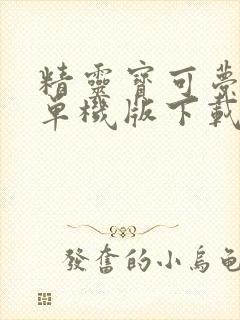 精靈寶可夢
單機版下載
發奮的小烏龜